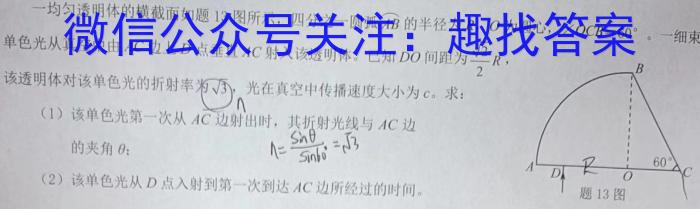 一均匀透明体的横截面如题13图所示,四分之一圆弧AB的半径
微信公众号关注:趣找答案
一细束
单色光从真空中由AC边上D点垂直AC射入该透明体。已知DO间距为 2/2 R,
该透明体对该单色光的折射率为√3,光在真空中传播速度大小为c。求:
n
(1)该单色光第一次从AC边射出时,其折射光线与AC边
的夹角θ;
n=sinθ/sin60°=√3
(2)该单色光从D点入射到第一次到达AC边所经过的时间。
B
60°
A D R O C
题13图